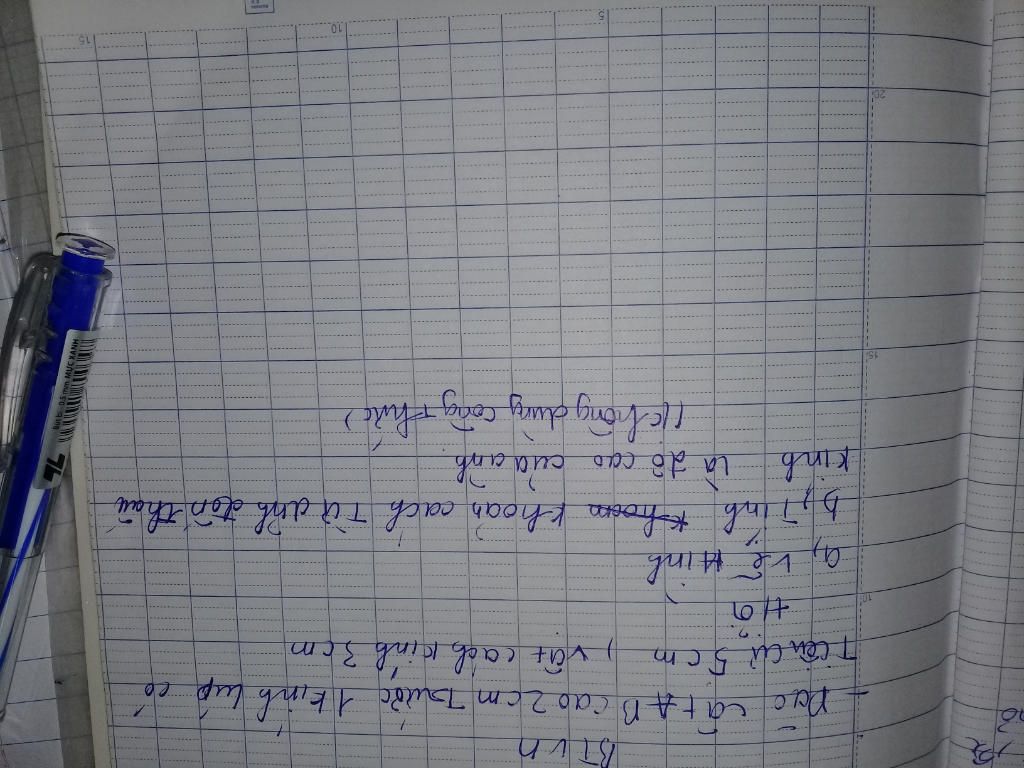 BTVN
- Đặc cật AB cao 2 cm Trước 1 kính lúp có
Tiêu cự 5 cm, vật cách kính 3 cm
Hỏi
a, vẽ Hình
b, Tính khoản cách Từ ảnh đến thấu
kính là độ cao của ảnh
(không dùng công thức)
5
10
15
20
15
10
TL
0.5 mm MỰC XANH